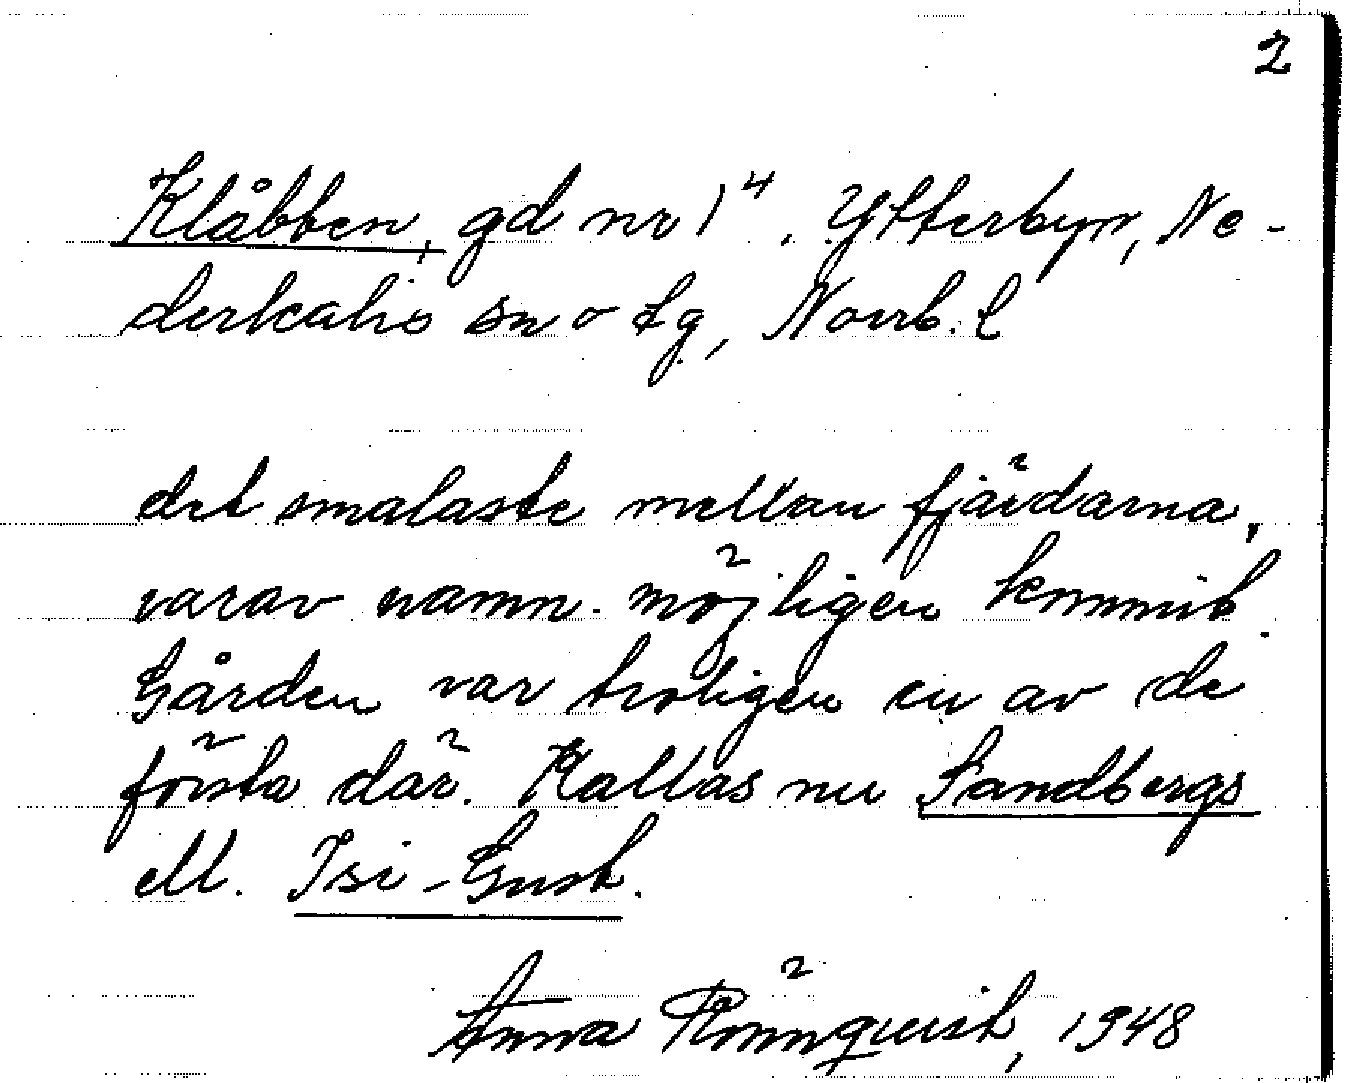 2
Klåbben, gd nr 1⁴, Ytterbyn, Ne-
derkalix sn o tg, Norrb. l
det smalaste mellan fjärdarna,
varav namn. möjligen kommit.
Gården var troligen en av de
första där. Kallas nu Sandbergs
ell. Isi-Gust.
Anna Rönnqvist, 1948